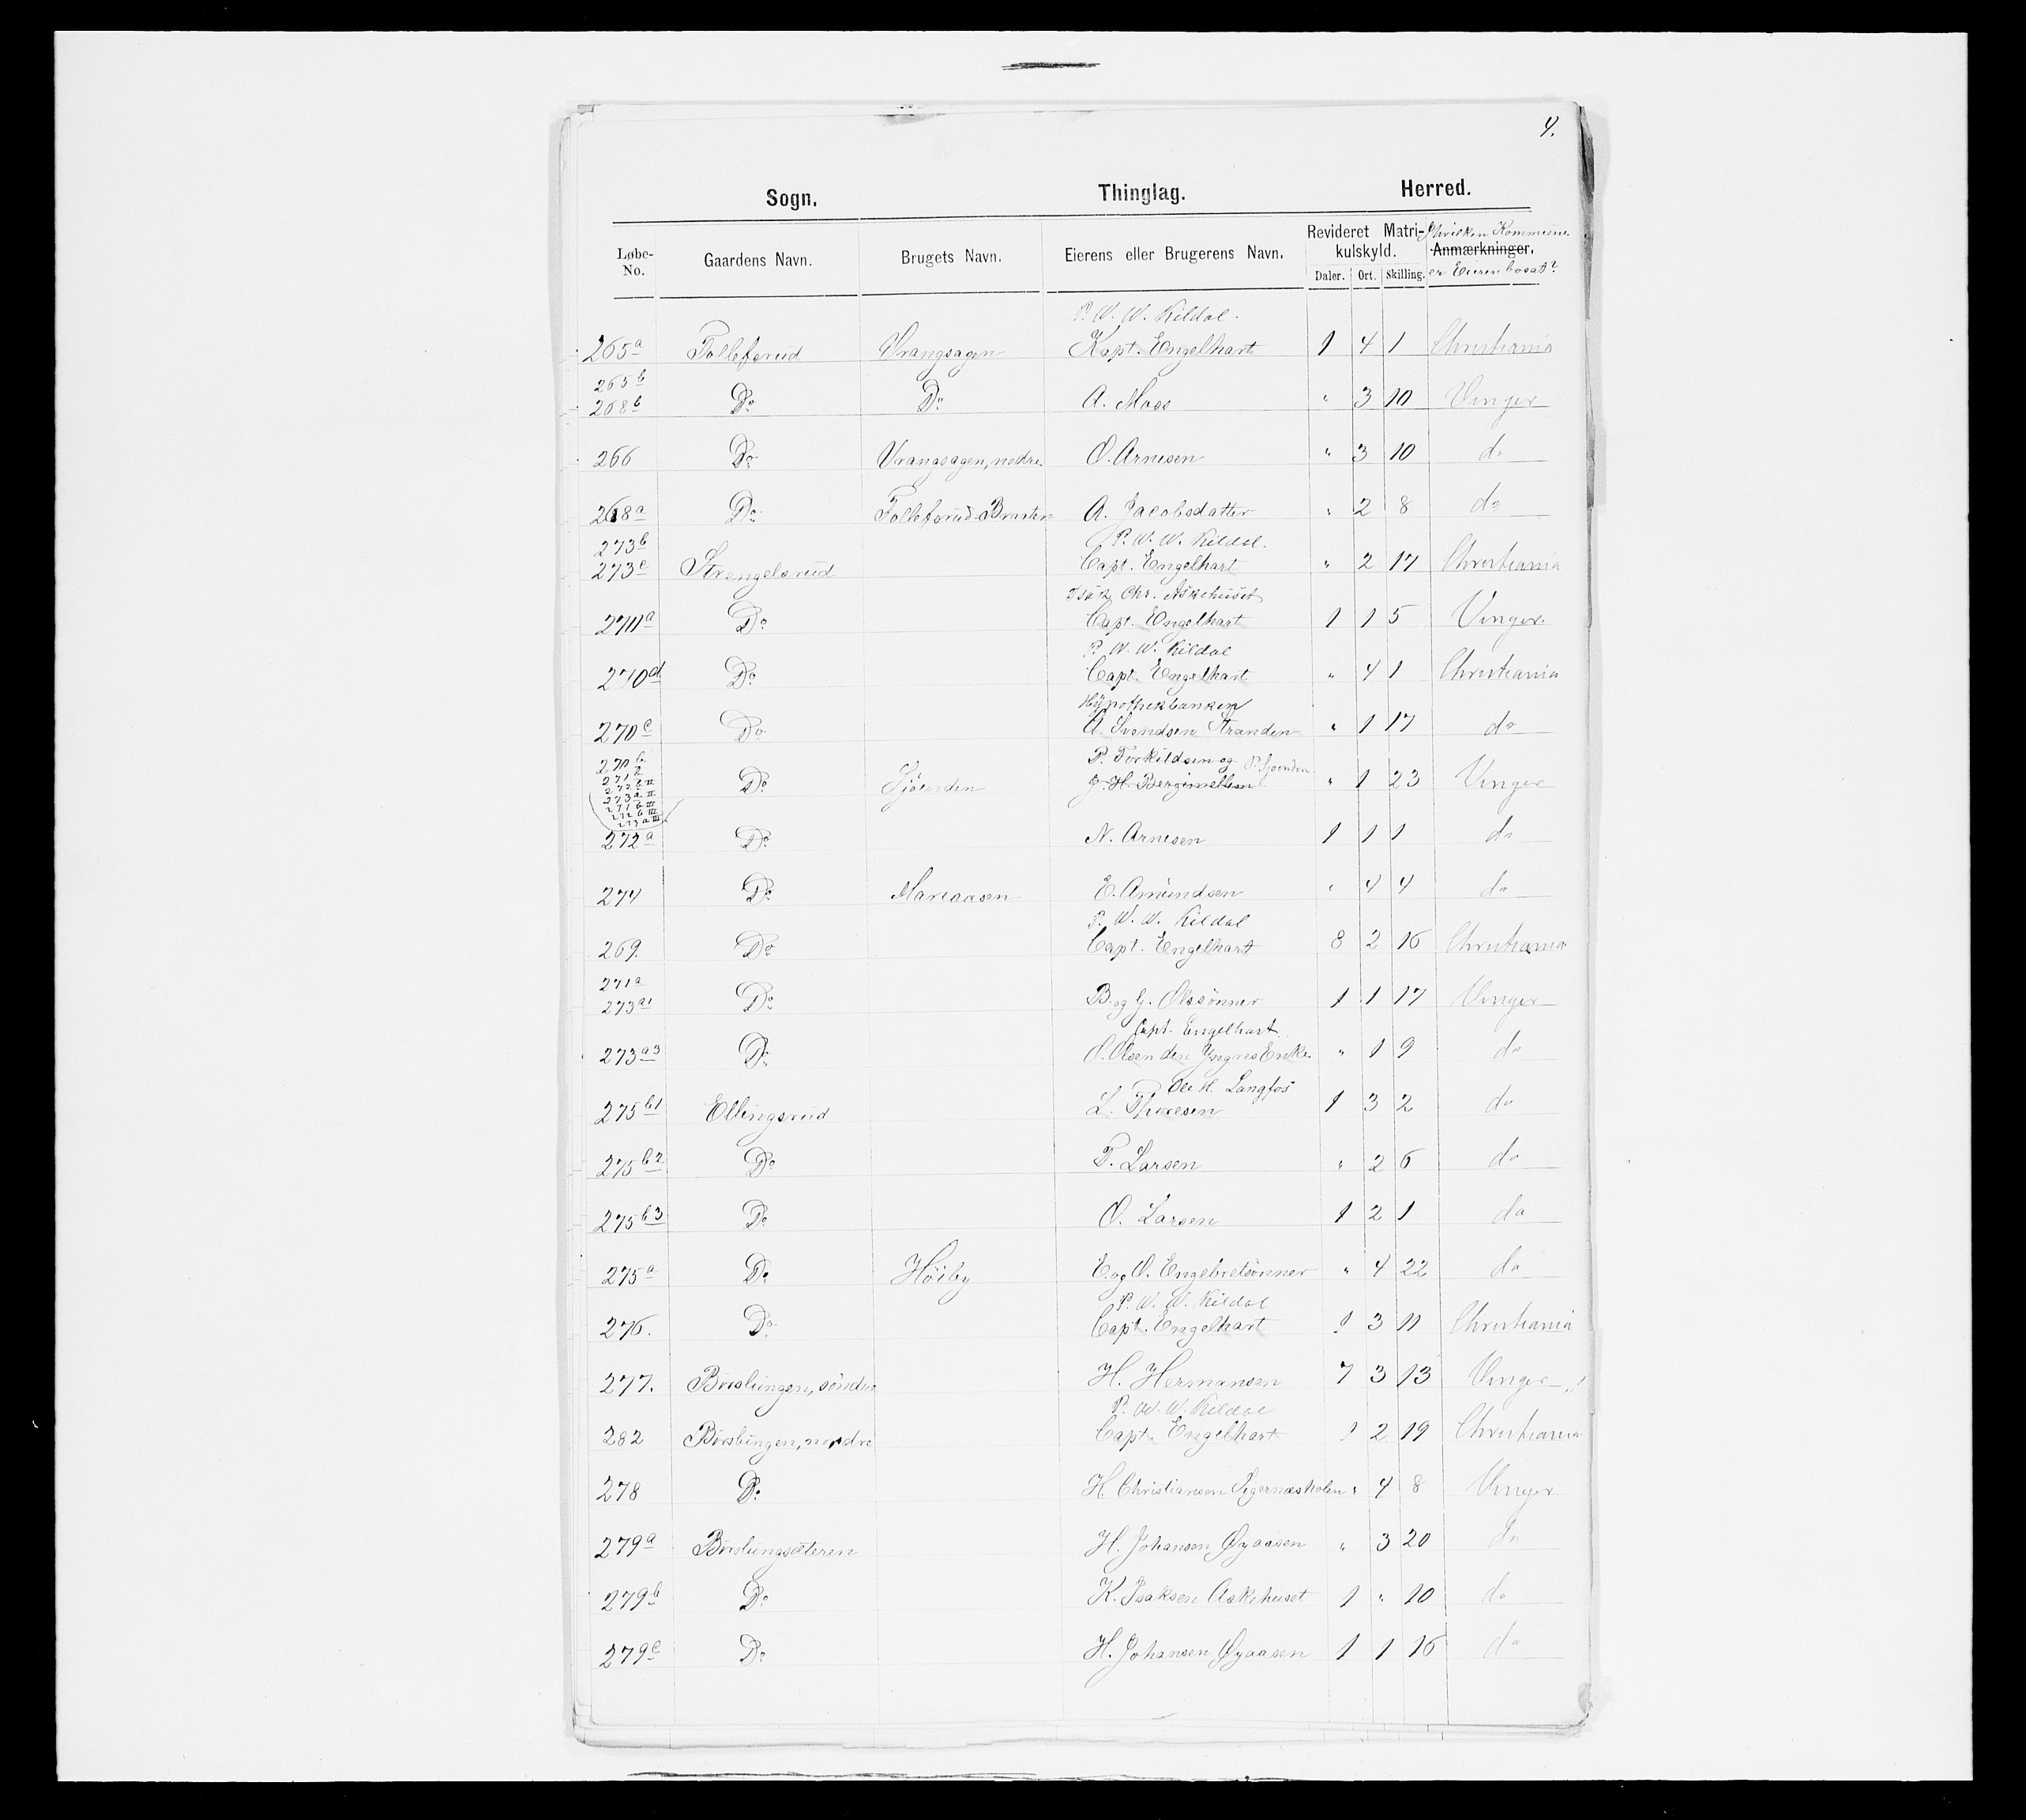 4.
Sogn. Thinglag. Herred.
Løbe-No. Gaardens Navn. Brugets Navn. Eierens eller Brugerens Navn. Revideret Matrikulskyld. Daler. Ort. Skilling. Hvilken Kommune Anmærkninger. er Eieren bosat?
P. W. W. Kildal.
265a Tollefsrud Vrangsagen Kapt. Engelhart 1 4 1 Christiania
265b
268b Do Do A. Moss " 3 10 Vinger
266 Do Vrangsagen, nedre. O. Arnesen " 3 10 do
268a Do Tollefsrud-Braaten A. Jacobsdatter " 2 8 do
273b P. W. W. Kildal.
273c Strengelsrud Capt. Engelhart " 2 17 Christiania
Isak Chr. Askehuset
270a Do Capt. Engelhart 1 1 5 Vinger.
P. W. W. Kildal
270d Do Capt. Engelhart " 4 1 Christiania
Hypothekbanken
270c Do A. Svendsen Stranden " 1 17 do
270b P. Torkildsen og P. Sjoenden
271b
272b II
273a II
271b III
272b III
273a III
Do Sjöenden J. H. Bergimellem " 1 23 Vinger
272a Do N. Arnesen 1 1 1 do
274 Do Mariaasen E. Amundsen " 4 4 do
P. W. W. Kildal
269. Do Capt. Engelhart 8 2 16 Christiania
271a
273a1 Do B. og G. Olssönner 1 1 17 Vinger
Capt. Engelhart
273a3 Do O. Olsen den Yngres Enke. " 1 9 do
Ole H. Langfos
275b1 Ellingsrud L. Thoresen 1 3 2 do
275b2 Do P. Larsen " 2 6 do
275b3 Do O. Larsen 1 2 1 do
275a Do Höiby E. og O. Engebretsönner " 4 22 do
P. W. W. Kildal
276. Do Capt. Engelhart 1 3 11 Christiania
277. Børslungen, söndre H. Hermansen 7 3 13 Vinger
P. W. W. Kildal
282 Børslungen, nordre Capt. Engelhart 1 2 19 Christiania
278 Do H. Christiansen Sigernæsholen " 4 8 Vinger
279a Børslungsæteren H. Johansen Øyaasen " 3 20 do
279b Do K. Isaksen Askehuset 1 " 10 do
279c Do H. Johansen Øyaasen 1 1 16 do